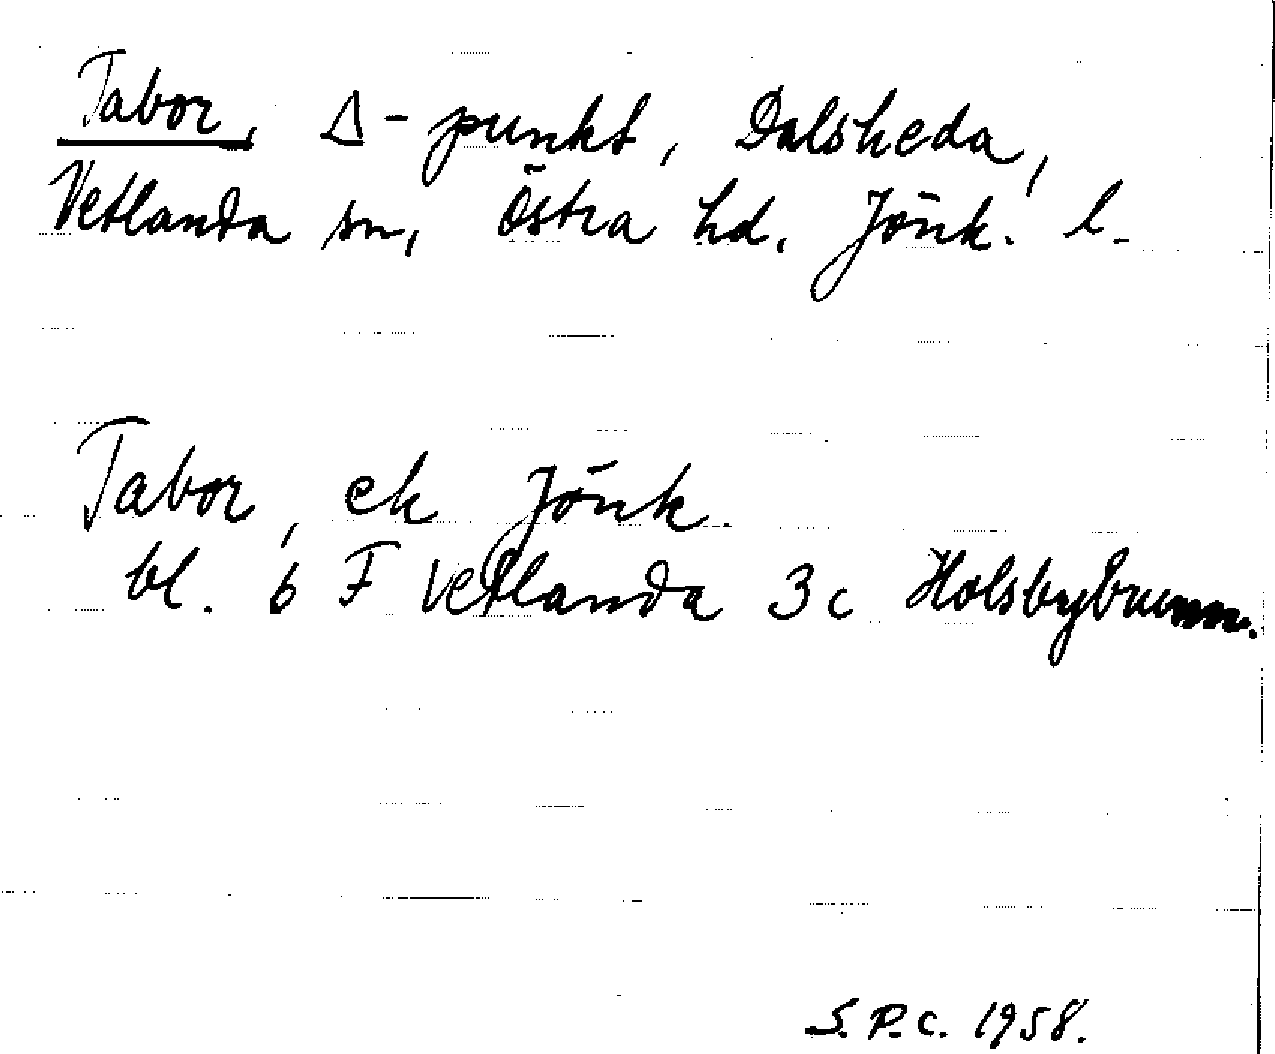 Tabor, Δ-punkt, Dalsheda,
Vetlanda sn, Östra hd. Jönk. l.
Tabor, ek Jönk.
bl. 6 F Vetlanda 3c Holsbybrunn.
S.P.C. 1958.